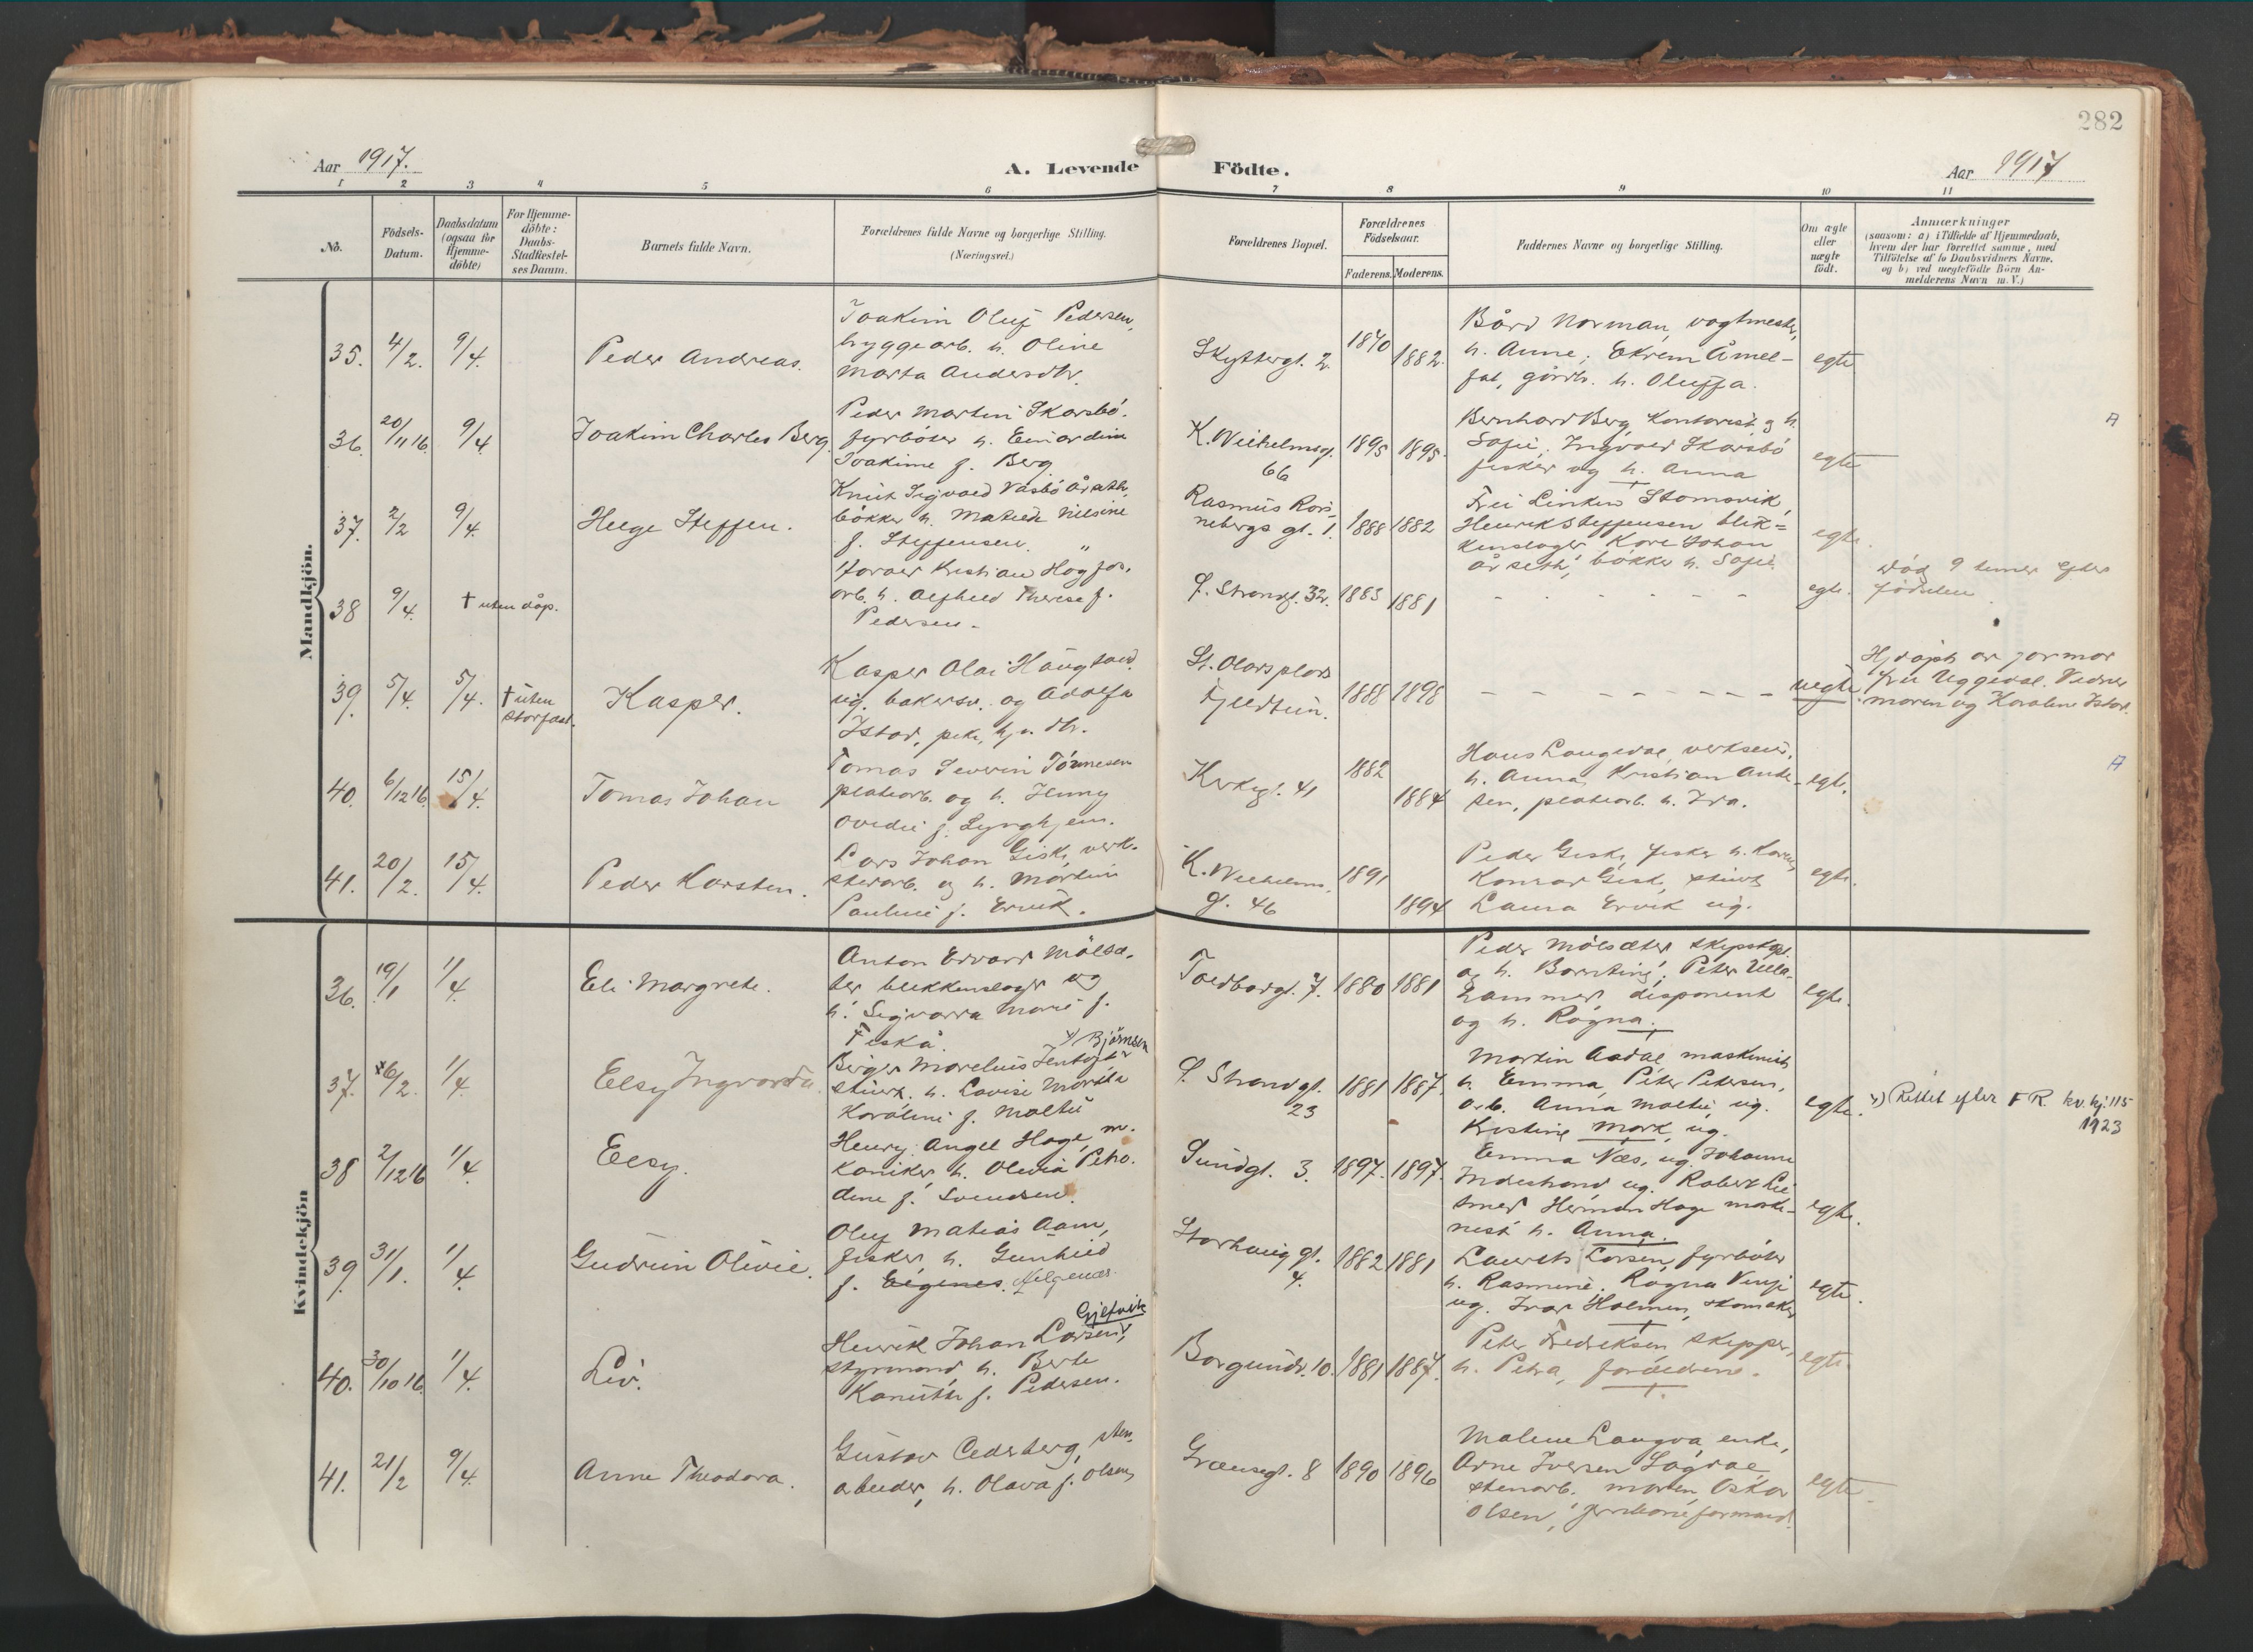 282
Aar 1917.
A. Levende Födte.
Aar 1917
1 2 3 4 5 6 7 8 9 10 11
No.
Födsels-
Datum.
Daabsdatum
(ogsaa for
Hjemme-
döbte)
For Hjemme-
döbte:
Daabs-
Stadfæstel-
ses Datum.
Barnets fulde Navn.
Forældrenes fulde Navne og borgerlige Stilling.
(Næringsvei.)
Forældrenes Bopæl.
Forældrenes
Födselsaar.
Faderens. Moderens.
Faddernes Navne og borgerlige Stilling.
Om ægte
eller
uægte
födt.
Anmærkninger
(saasom: a) i Tilfælde af Hjemmedaab,
hvem der har forrettet samme, med
Tilföielse af to Daabsvidners Navne,
og b) ved uægtefödte Börn An-
melderens Navn m. V.)
Mandkjön.
35. 4/2. 9/4. Peder Andreas.
Joakim Oluf Pedersen,
bryggearb. h. Oline
Marta Andersdtr.
Skyttergt. 2. 1870 1882.
Bård Norman, vagtmester,
h. Anne; Ekrem Åmel-
fat, gårdbr. h. Oluffa.
egte
36. 20/11 16. 9/4. Joakim Charles Berg.
Peder Martin Skarsbö.
fyrböter h. Einardine
Joakime f. Berg
K. Wilhelmsgt.
66
1895 1895.
Bernhard Berg, kontorist og h.
Sofie, Ingvald Skarsbö
fisker og h. Anna
egte
A
37. 2/2 9/4. Helge Steffen.
Knut Sigvald Vasbö Årseth,
bökker h. Matilde Nilsine
f. Steffensen.
Rasmus Rön-
nebergs gt. 1. 1888 1882
Frü Linken Stomsvik,
Henrik Steffensen blik-
kenslager Kare Johan
Årseth, bökker h. Sofie.
egte.
38 9/4. † uten dåp.
Kristian Hag
arb. h. Alfhild Therese f.
Pedersen.
S. Strandgt. 32. 1883 1881
- - - - - -
egte.
Död 9 timer efter
födselen.
39. 5/4. 5/4. † uten
stadfæst.
Kasper.
Kasper Olai Haugland
ug. bakersv. og Adolfa
Istad, pike,
St. Olavs plads
Fjeldtun. 1888 1898
- - - - - - -
uegte.
Hj.döpt av jormor
frü Uggedal. Vidner
moren og Karoline Istad.
40. 6/12 16. 15/4. Tomas Johan
Tomas Severin Tönnesen
platearb. og h. Jenny
Ovedie f. Lynghjem.
Kirkegt. 41 1882 1884
Hans Langedal, verkseier,
h. Anna, Kristian Ande-
sen, platearb. h. Ida.
egte.
A
41. 20/2. 15/4. Peder Karsten.
Lars Johan Giske, verk-
stedarb. og h. Martine
Pauline f. Ervik.
K. Wilhelms
gt. 46 1891 1894
Peder Giske, fisker h. Karen,
Konrad Giske, stüert
Laura Ervik ug.
egte.
Kvindekjön
36. 19/1 1/4. Eli Margrete.
Anton Edvard Mölsæ-
ter blikkenslager og
h. Sigvarda Marie f.
Fiskå.
Toldbodgt. 7. 1880 1881
Peder Mölsæter skipskapt.
og h. Berntine; Peter Ulla-
Lammers, disponent
og h. Ragna.
egte.
37. x6/2. 1/4. Elsy Ingvarda.
x) Björnsen
Birger Marelius Jentoft x
stüert. h. Lovise Marta
Karoline f. Malthe
S. Strandgt.
23 1881 1887.
Martin Aadal maskinist
h. Emma, Peter Petersen,
arb. Anna Malthe, ug.
Kristine Mork, ug.
egte.
x) Rettet efter F R. kv. kj. 115
1923
38 2/12 16 1/4. Elsy.
Henry Angel Hage, me-
kaniker, h. Olivia Petro.
dine f. Svendsen.
Sundgt. 3. 1897. 1897.
Emma Næs, ug. Johanne
Indestrand ug. Robert Lie
smed Herman Hage maski-
nist h. Anna.
egte.
39. 31/1. 1/4 Gudrun Olivie.
Oluf Matias Aam,
fisker h. Gunhild
f. Eigenes. Helgenes.
Storhaug gt.
4. 1882 1881
Laurits Larsen, fyrböter
h. Rasmine. Ragna Vinje
ug. Ivar Holmen, skomaker
egte.
40. 30/10 16. 1/4. Liv.
Gjelsvik
Henrik Johan Larsen,
styrmand, h. Berte
Kanutte f. Pedersen.
Borgundv. 10. 1881 1887.
Peter Fredriksen, skipper,
h. Petra, foreldrene.
egte.
41. 21/2 9/4. Anne Theodora.
Gustav Cederberg, sten-
arbeider, h. Olava f. Olsen,
Grænsegt. 8 1890 1896
Malene Langva, enke,
Arne Iversen Lågdal
stenarb. Martin Oskar
Olsen, formand.
egte.